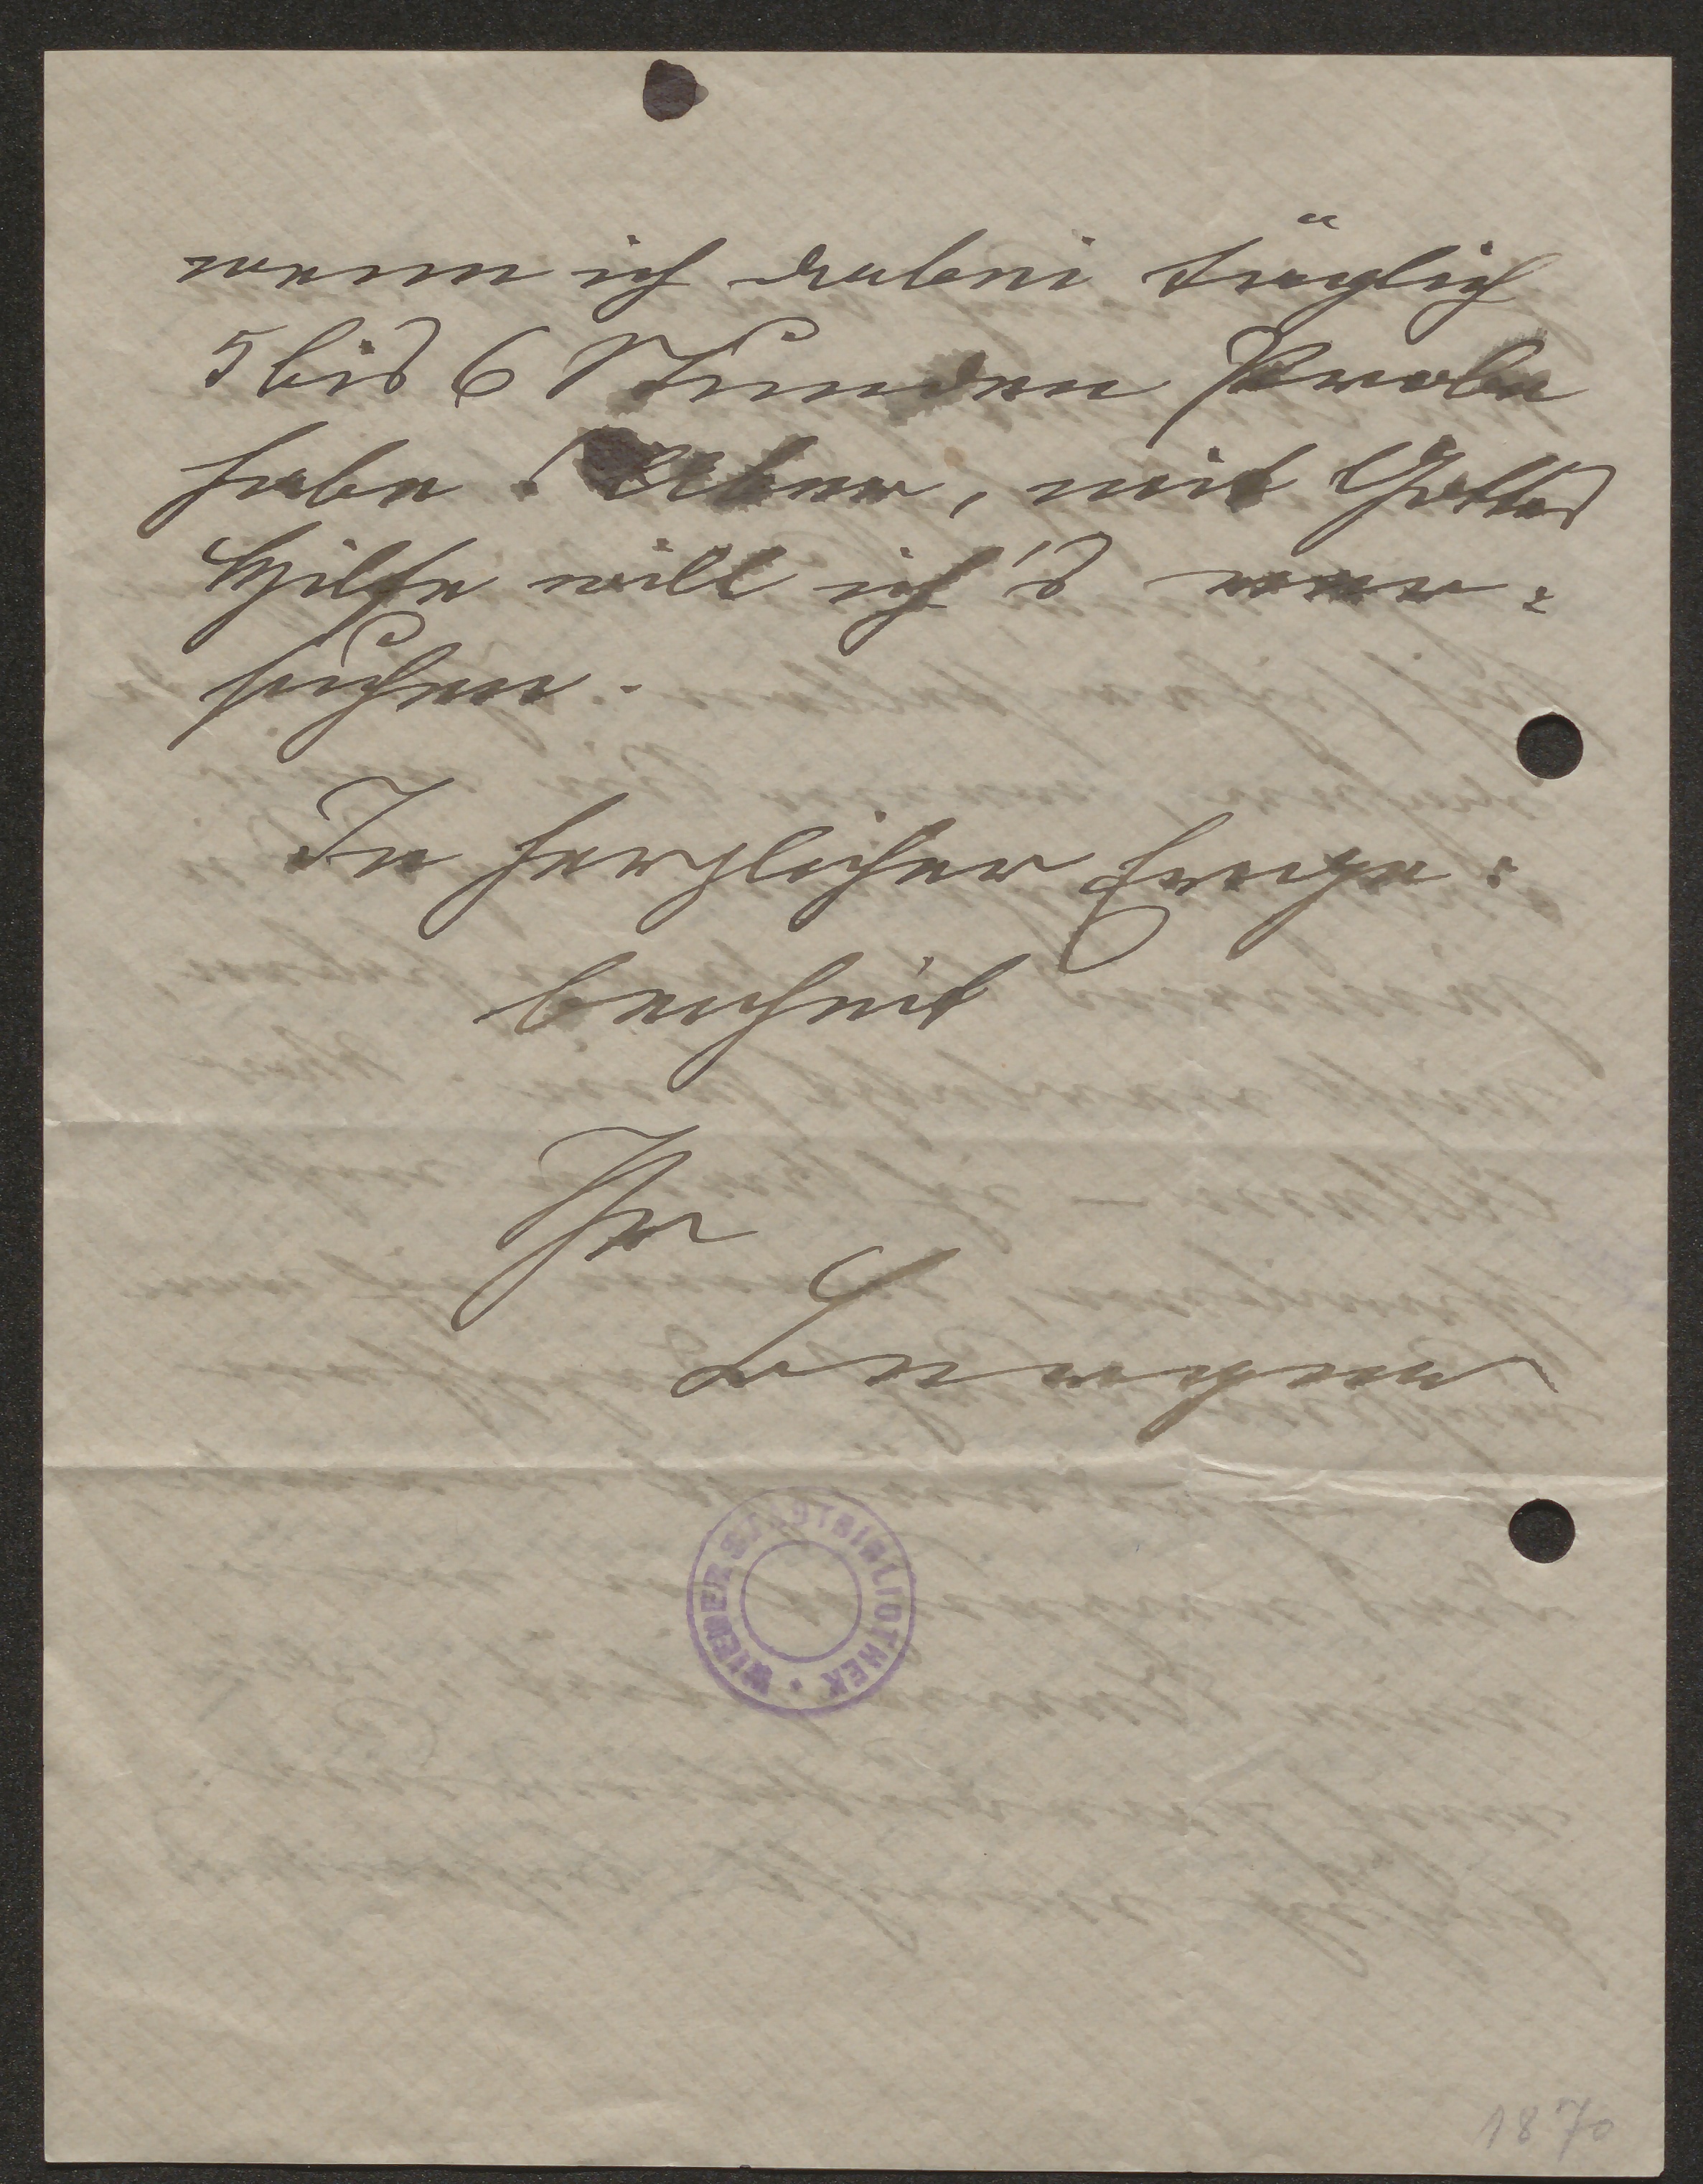 wenn ich dabei täglich
5 bis 6 Stunden Probe
habe! Aber, mit Gottes
Hilfe will ich's ver=
suchen.
In herzlicher Erge=
benheit
Ihr
WIENER STADTBIBLIOTHEK
1870